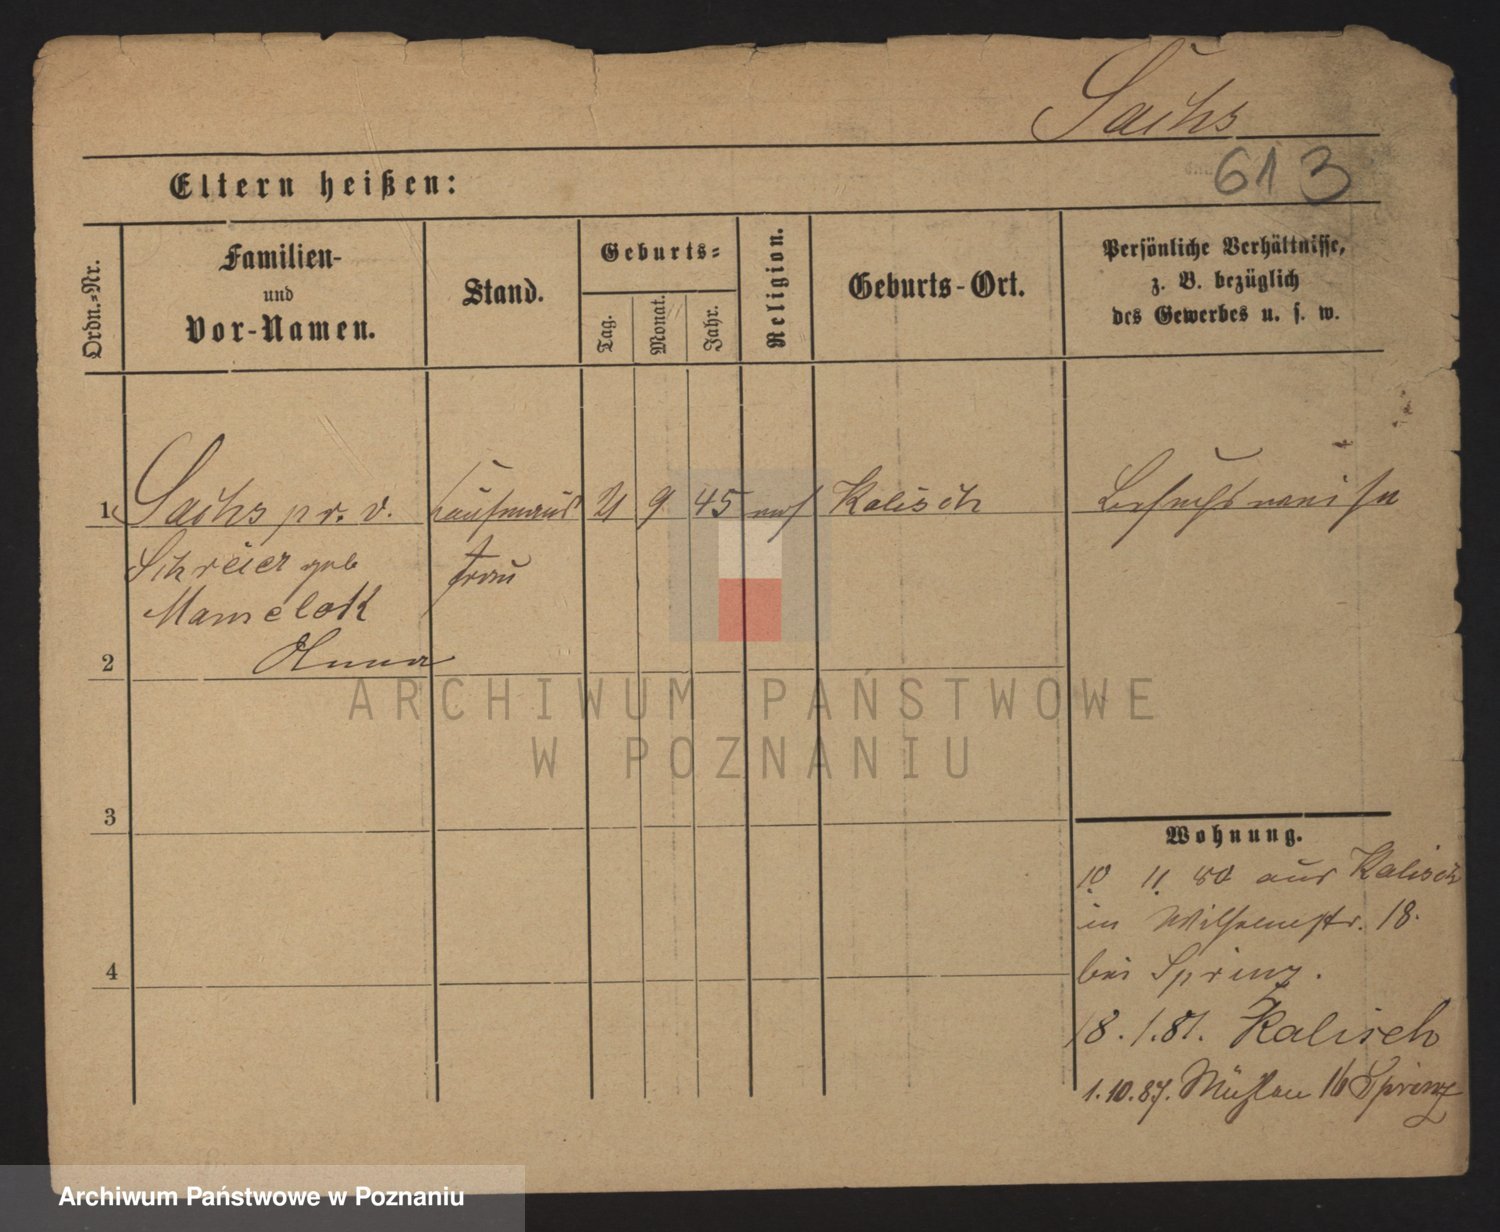 Sachs
613
Eltern heißen:
Ordn.=Nr.
Familien-
und
Vor-Namen.
Stand.
Geburts=
Tag.
Monat.
Jahr.
Religion.
Geburts-Ort.
Persönliche Verhältnisse,
z. B. bezüglich
des Gewerbes u. s. w.
1 Sachs pr. v. Kaufmanns 21 9 45 mos Kalisch besuchsweise
Schreier geb frau
Mamelok
2 Anna
ARCHIWUM PAŃSTWOWE
W POZNANIU
3
Wohnung.
10 11 80 aus Kalisch
in Wilhelmstr. 18.
4 bei Sprinz.
18.1.81. Kalisch
1.10.87. Mühlen 16 Sprinz
Archiwum Państwowe w Poznaniu